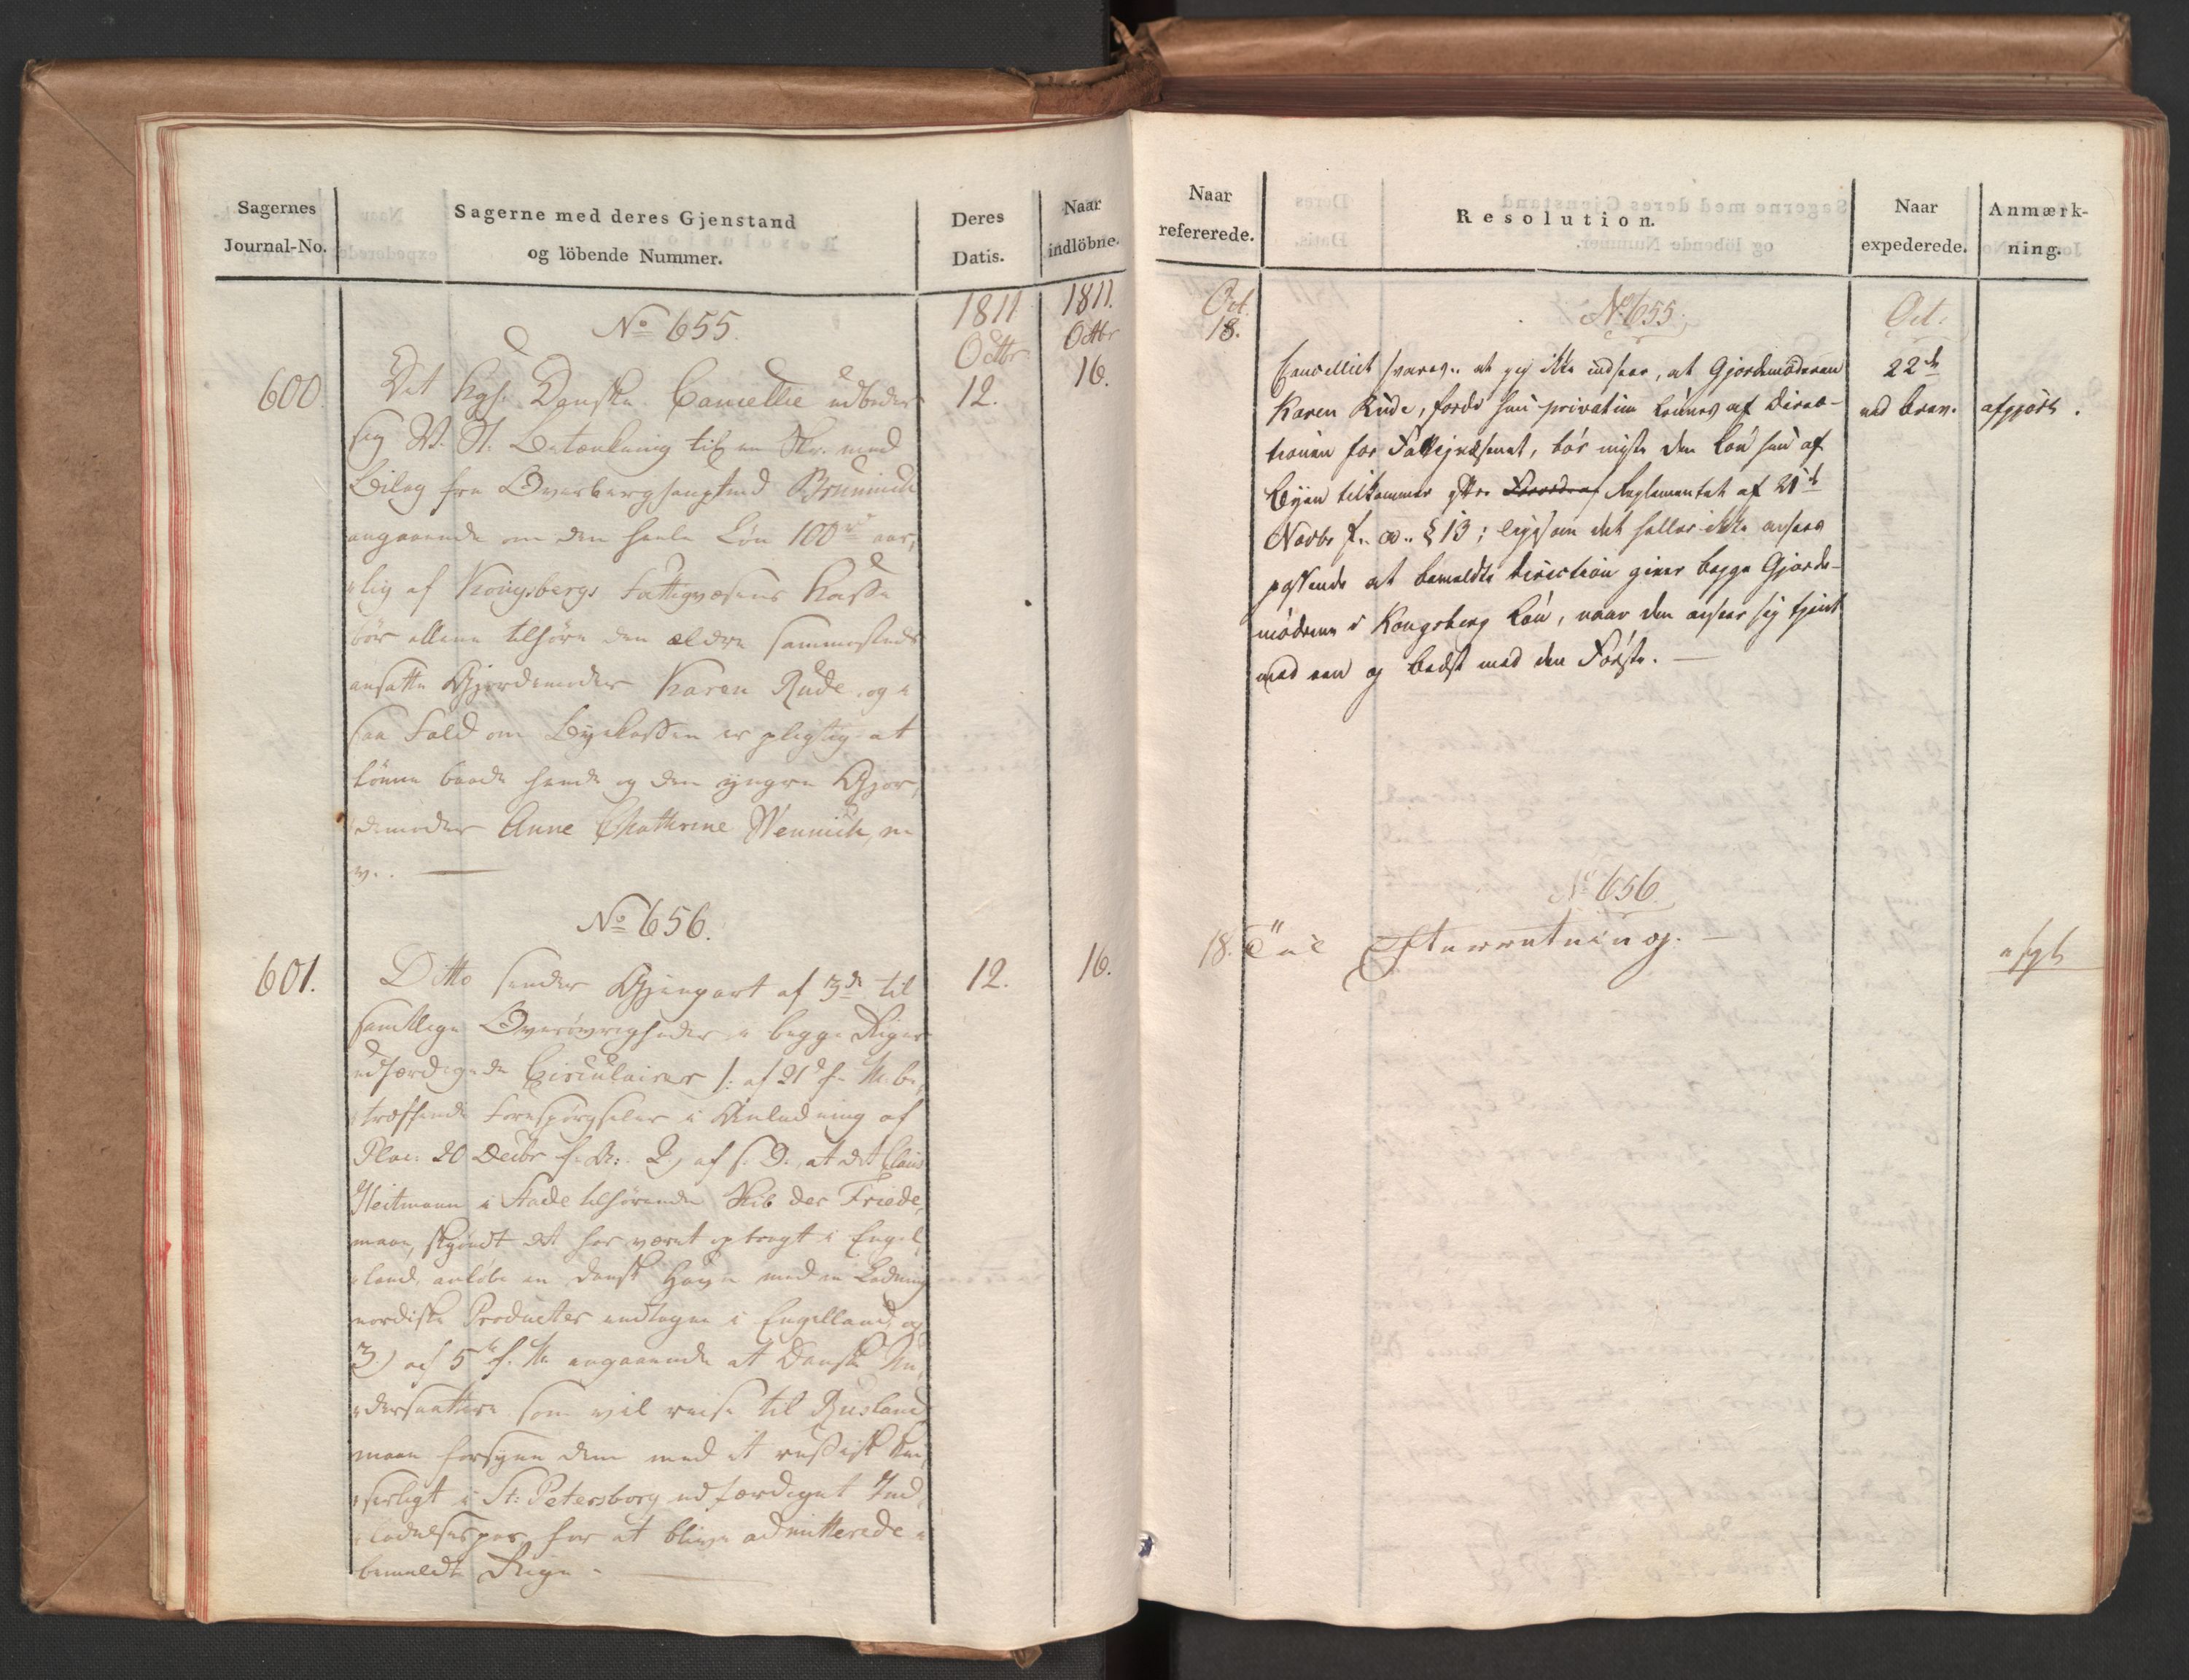 Sagernes
Journal-No.
Sagerne med deres Gjenstand
og löbende Nummer.
Deres
Datis.
Naar
indlöbne.
1811
Octbr
1811.
Octbr
No 655.
600
Det Kgl. Danske Cancellie udbeder
12.
16.
sig V. S. Betænkning til en Skr. med
Bilag fra Overberghauptmd Brünnich
angaaende om den heele Løn 100 rd aar,
lig af Kongsbergs Fattigvæsens Kasse
bör alleene tilhöre den ældre sammesteds
ansatte Gjordemoder Karen Rude, og i
saa Fald om Byekassen er pligtig at
lönne baade hende og den yngre Gjor,
demoder Anne Chathrine Wennich, m
v. .
No 656.
601.
Ditto sender Gjenpart af 3de til
12.
16.
samtlige Overövrigheder i begge Riger
udfærdigede Circulairer 1: af 21d f. M. be,
træffende Forespörgseler i Anledning af
Plac. 20 Decbr f. A:. 2) af s. D., at det Claus
Heitmann i Stade tilhörende Skib der Friede,
mann, skjöndt det har været opbragt i Engel,
land, anlöbe en dansk Havn med en Ladning
nordiske Producter indtagne i Engelland, og
3) af 5te f. M angaaende at Danske Un,
dersaattere som vil reise til Rusland
maae forsyne dem med et russisk Kei,
serligt i St: Petersborg udfærdiget Ind,
ladelsespas for at blive admitterede i
bemeldte Rige -
Naar
refererede.
Resolution.
Naar
expederede.
Anmærk-
ning.
Oct.
18.
No 655.
Oct.
Cancelliet svares. at jeg ikke indseer, at Gjordemöderen
22de
Karen Rude, fordi hun privatim lönnes af Direc-
ved Brev.
afgjört.
tionen for Fattigvæsenet, bör miste den Lön hun af
Byen tilkommer efter Forordn. af Reglementet af 21de
Novbr f. A. § 13; ligesom det heller ikke ansees
passende at bemeldte Direction giver begge Gjorde-
mödrene i Kongsberg Lön, naar den anseer sig tjent
med een og bedst med den Förste. —
No 656.
18.
Til Efterretning. —
afgt